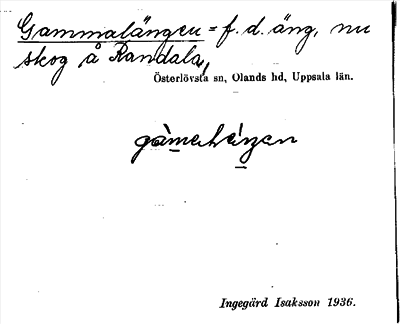 Gammalängen = f. d. äng, nu
skog å Randala,
Österlövsta sn, Olands hd, Uppsala län.
Ingegärd Isaksson 1936.